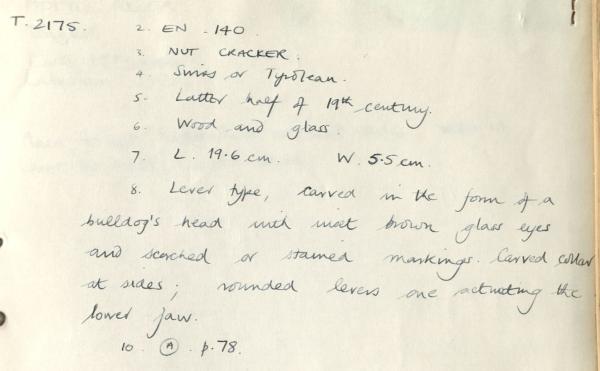 T.2175. 2. EN .140.
3. NUT CRACKER.
4. Swiss or Tyrolean.
5. Latter half of 19th century.
6. Wood and glass.
7. L. 19.6 cm. W. 5.5 cm.
8. Lever type, carved in the form of a
bulldog's head with inset brown glass eyes
and scorched or stained markings. Carved collar
at sides; rounded levers one actuating the
lower jaw.
10. (A). p.78.